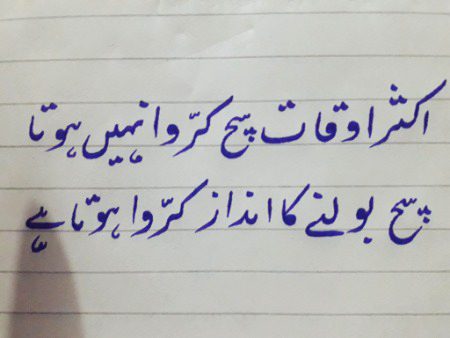 اکثر اوقات سچ کڑوا نہیں ہوتا
سچ بولنے کا انداز کڑوا ہوتا ہے